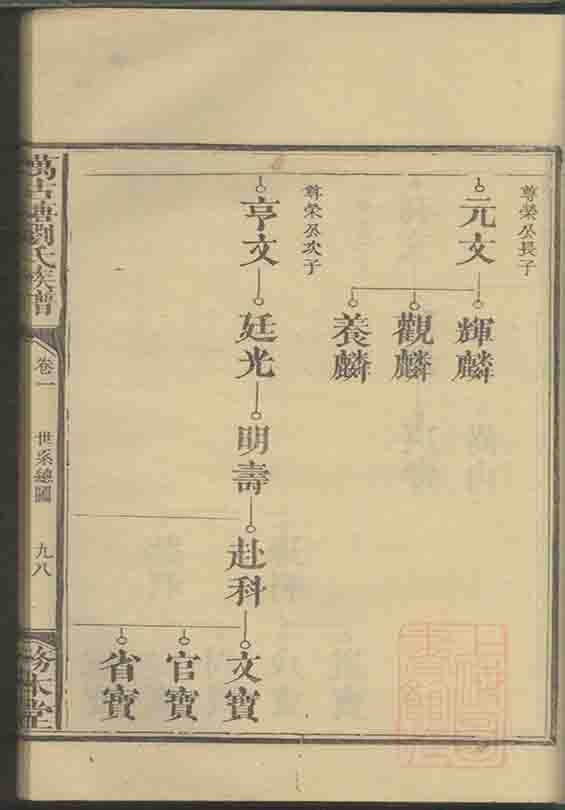 尊榮公長子
元文
輝麟
觀麟
養麟
尊榮公次子
亨文
廷光
明壽
赴科
文寶
官寶
省寶
萬古塘劉氏族譜
卷一
世系總圖
九八
務本堂